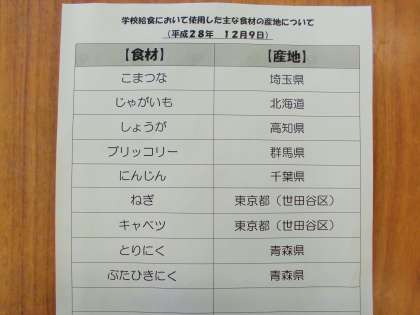 学校給食において使用した主な食材の産地について
(平成28年 12月9日)
【食材】 【産地】
こまつな 埼玉県
じゃがいも 北海道
しょうが 高知県
ブリッコリー 群馬県
にんじん 千葉県
ねぎ 東京都(世田谷区)
キャベツ 東京都(世田谷区)
とりにく 青森県
ぶたひきにく 青森県